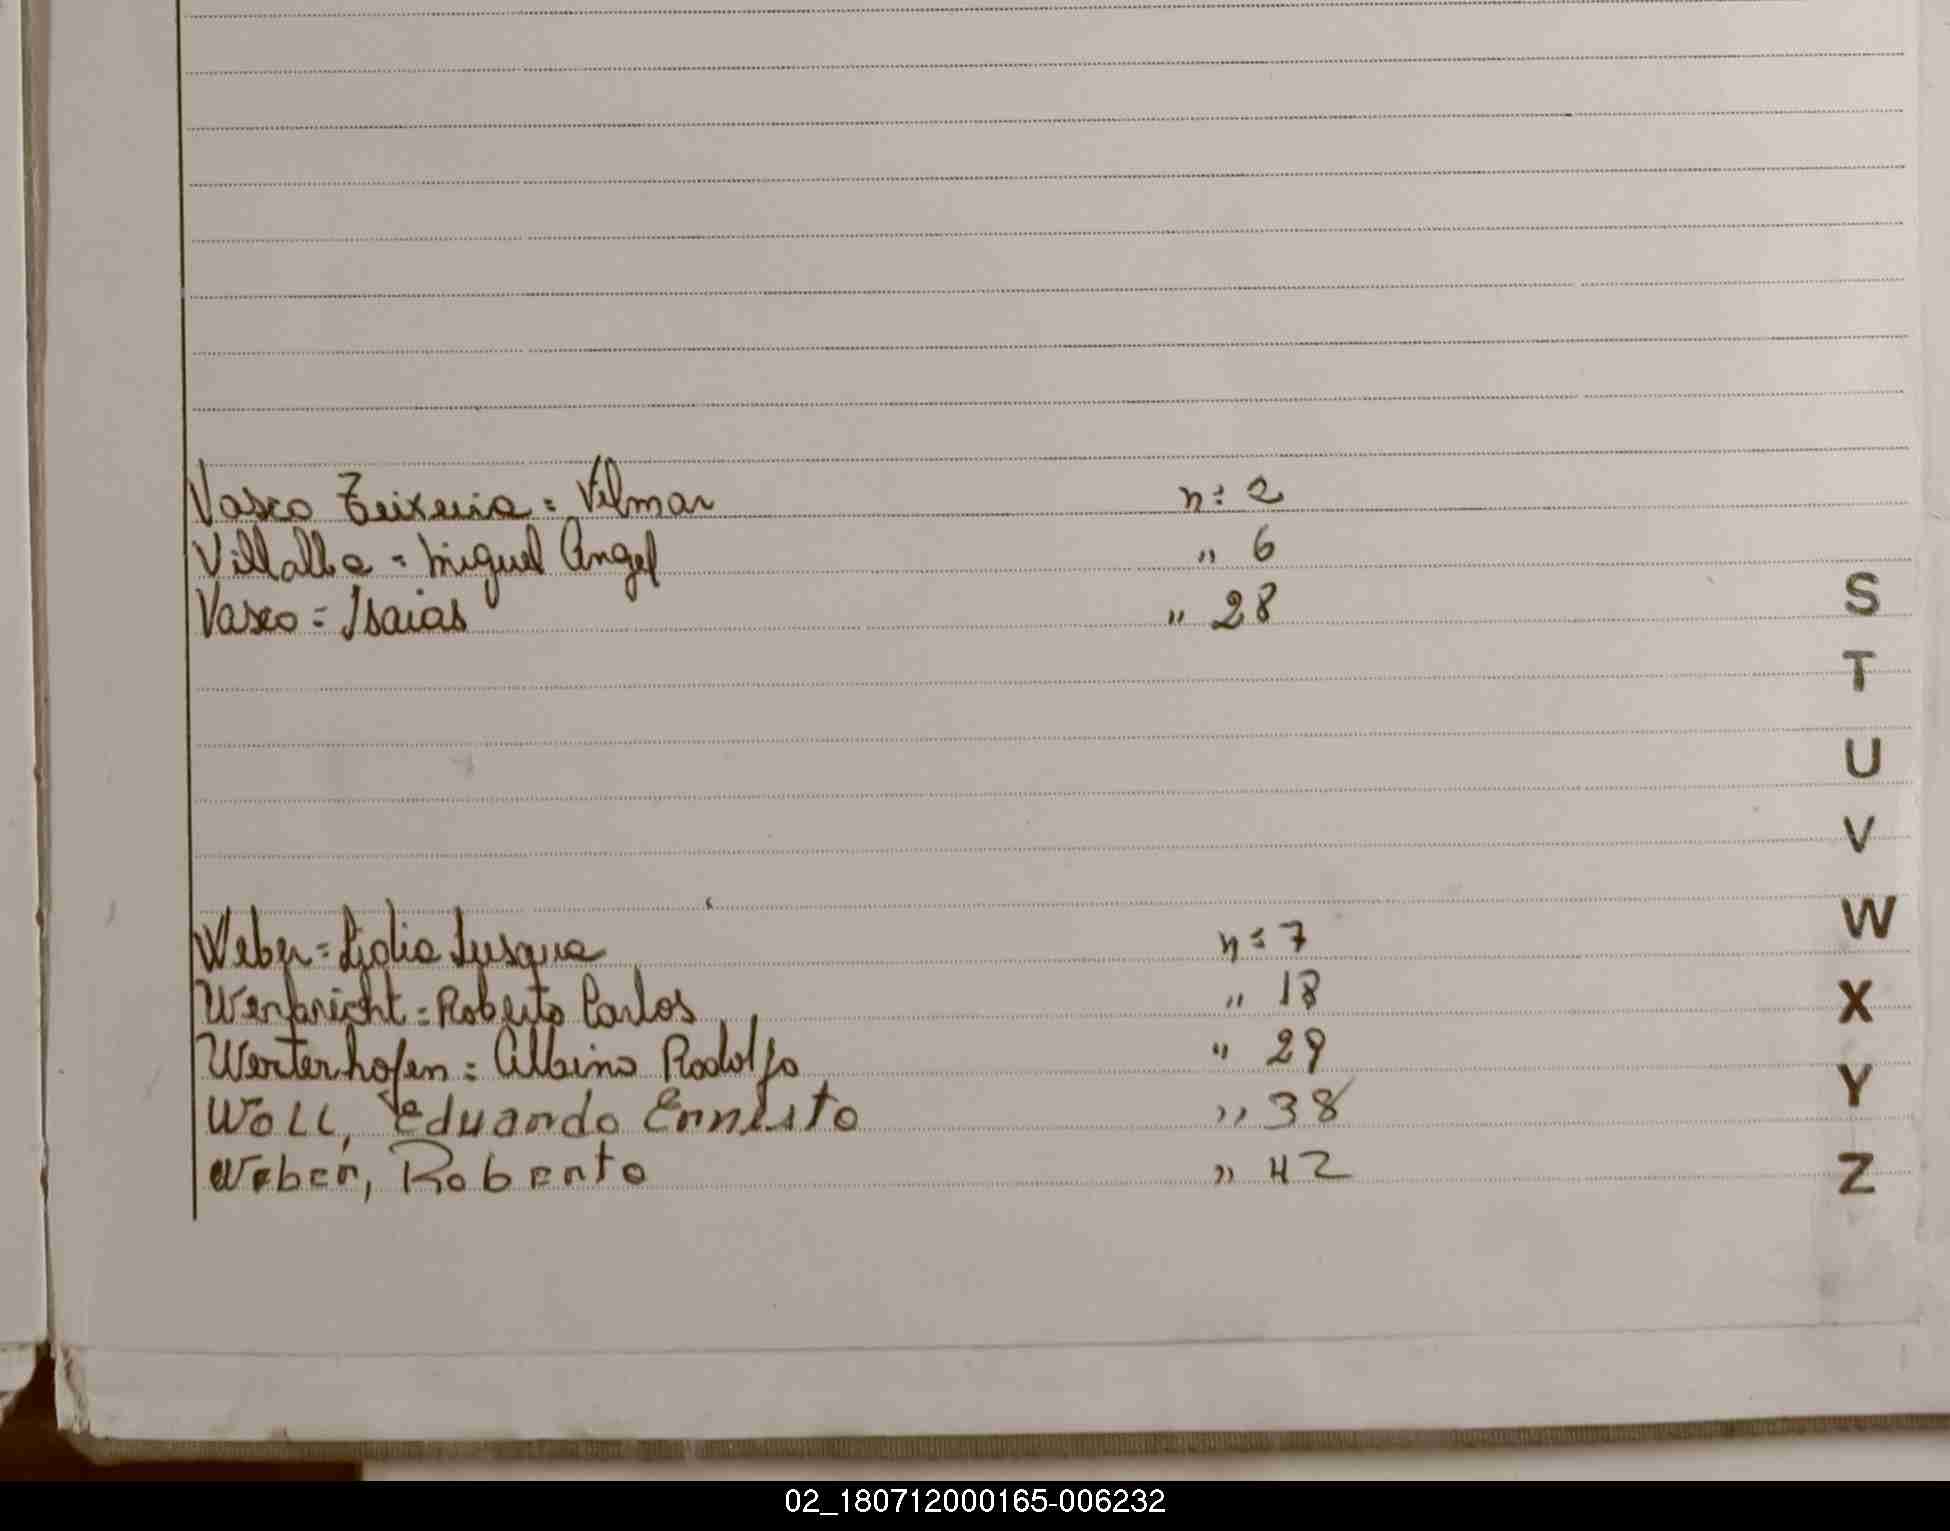 Vasco Teixeira = Vilmar n: 2
Villalba = Miguel Angel " 6
Vasco = Isaias " 28
S
T
U
V
Weber = Lidia n: 7
W
Roberto Carlos " 18
X
Westerhofen = Albino Rodolfo " 29
Y
Woll, Eduardo Ernesto " 38
Weber, Roberto " 42
Z
02_180712000165-006232